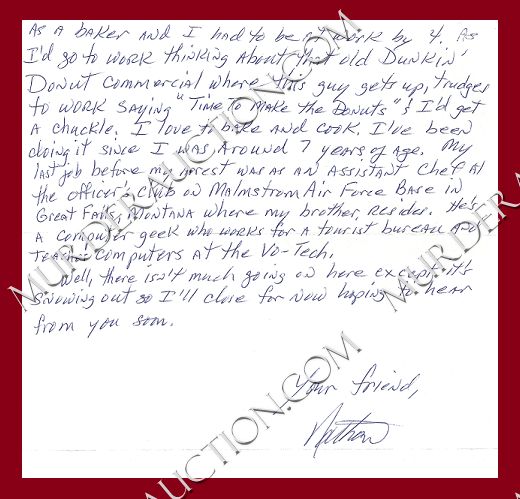 As a baker and I had to be at work by 4. As
I'd go to work thinking about that old Dunkin'
Donut commercial where this guy gets up, trudges
to work saying "Time to make the Donuts" & I'd get
a chuckle. I love to bake and cook. I've been
doing it since I was around 7 years of age. My
last job before my arrest was as an Assistant Chef at
the officer's club on Malmstrom Air Force Base in
Great Falls, Montana where my brother, resides. He's
a computer geek who works for a tourist bureau and
teach computers at the Vo-Tech.
Well, there isn't much going on here except it's
snowing out so I'll close for now hoping to hear
from you soon.
Your friend,
Nathan
MURDERAUCTION.COM
MURDERAUCTION.COM
MURDERAUCTION.COM